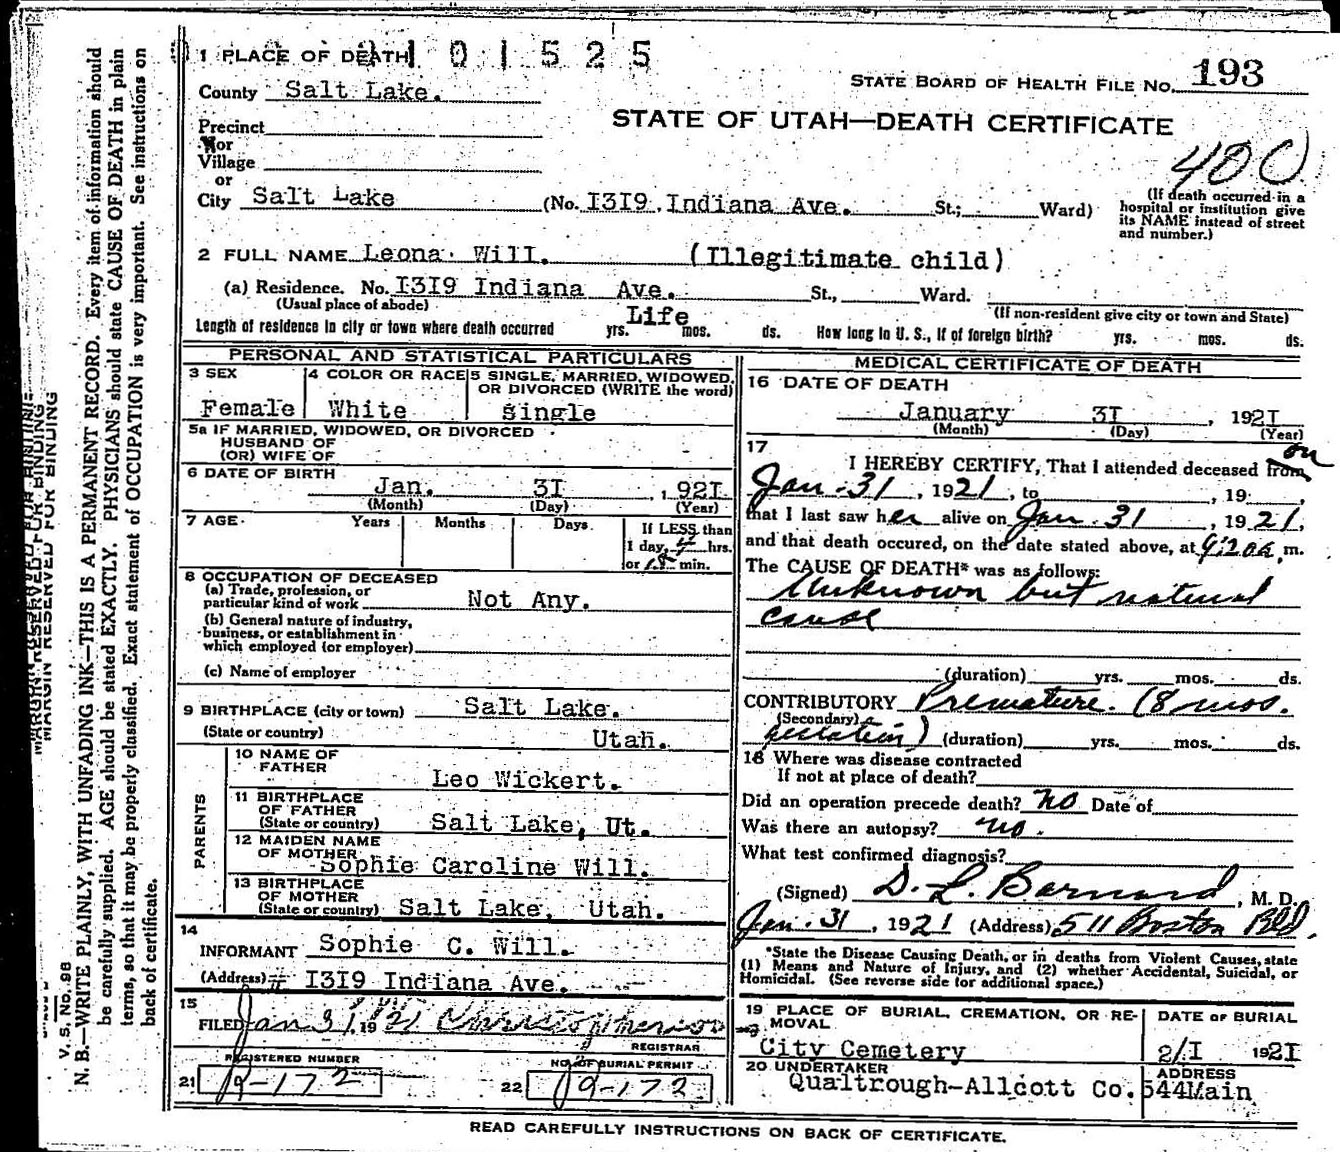 1 PLACE OF DEATH 1 0 1 5 2 5
STATE BOARD OF HEALTH FILE NO. 193
County Salt Lake.
STATE OF UTAH—DEATH CERTIFICATE
Precinct
or
Village
400
or
City Salt Lake (No. I3I9 Indiana Ave. St.; Ward)
(If death occurred in a
hospital or institution give
its NAME instead of street
and number.)
2 FULL NAME Leona Will. (Illegitimate child)
(a) Residence. No. I3I9 Indiana Ave. St., Ward.
(Usual place of abode) (If non-resident give city or town and State)
Length of residence in city or town where death occurred yrs. Life mos. ds. How long in U. S., if of foreign birth? yrs. mos. ds.
PERSONAL AND STATISTICAL PARTICULARS
3 SEX 4 COLOR OR RACE 5 SINGLE, MARRIED, WIDOWED,
OR DIVORCED (WRITE the word)
Female White Single
5a IF MARRIED, WIDOWED, OR DIVORCED
HUSBAND OF
(OR) WIFE OF
6 DATE OF BIRTH
Jan. 3I , 192I
(Month) (Day) (Year)
7 AGE Years Months Days If LESS than
1 day, 4 hrs.
or 18 min.
8 OCCUPATION OF DECEASED
(a) Trade, profession, or
particular kind of work Not Any.
(b) General nature of industry,
business, or establishment in
which employed (or employer)
(c) Name of employer
9 BIRTHPLACE (city or town) Salt Lake.
(State or country) Utah.
PARENTS
10 NAME OF
FATHER
Leo Wickert.
11 BIRTHPLACE
OF FATHER
(State or country) Salt Lake, Ut.
12 MAIDEN NAME
OF MOTHER
Sophie Caroline Will.
13 BIRTHPLACE
OF MOTHER
(State or country) Salt Lake, Utah.
14
INFORMANT Sophie C. Will.
(Address) # I3I9 Indiana Ave.
15
FILED Jan 31, 1921
REGISTRAR
REGISTERED NUMBER NO. OF BURIAL PERMIT
21 19-172 22 19-172
MEDICAL CERTIFICATE OF DEATH
16 DATE OF DEATH
January 3I , 192I
(Month) (Day) (Year)
17
on
I HEREBY CERTIFY, That I attended deceased from
Jan. 31, 1921, to , 19 ,
that I last saw her alive on Jan. 31, 1921,
and that death occured, on the date stated above, at 9:20a, m.
The CAUSE OF DEATH* was as follows:
Unknown but natural
cause
(duration) yrs. mos. ds.
CONTRIBUTORY Premature. (8 mos.
(Secondary)
gestation) (duration) yrs. mos. ds.
18 Where was disease contracted
If not at place of death?
Did an operation precede death? no Date of
Was there an autopsy? no.
What test confirmed diagnosis?
(Signed) D. L. Barnard, M. D.
Jan. 31, 1921 (Address) 511 Boston Bld.
*State the Disease Causing Death, or in deaths from Violent Causes, state
(1) Means and Nature of Injury, and (2) whether Accidental, Suicidal, or
Homicidal. (See reverse side for additional space.)
19 PLACE OF BURIAL, CREMATION, OR RE-
MOVAL
DATE OF BURIAL
City Cemetery 2/I 192I
20 UNDERTAKER ADDRESS
Qualtrough-Allcott Co. 544Main
READ CAREFULLY INSTRUCTIONS ON BACK OF CERTIFICATE.
MARGIN RESERVED FOR BINDING
V. S. No. 98
N. B.—WRITE PLAINLY, WITH UNFADING INK—THIS IS A PERMANENT RECORD. Every item of information should
be carefully supplied. AGE should be stated EXACTLY. PHYSICIANS should state CAUSE OF DEATH in plain
terms, so that it may be properly classified. Exact statement of OCCUPATION is very important. See instructions on
back of certificate.